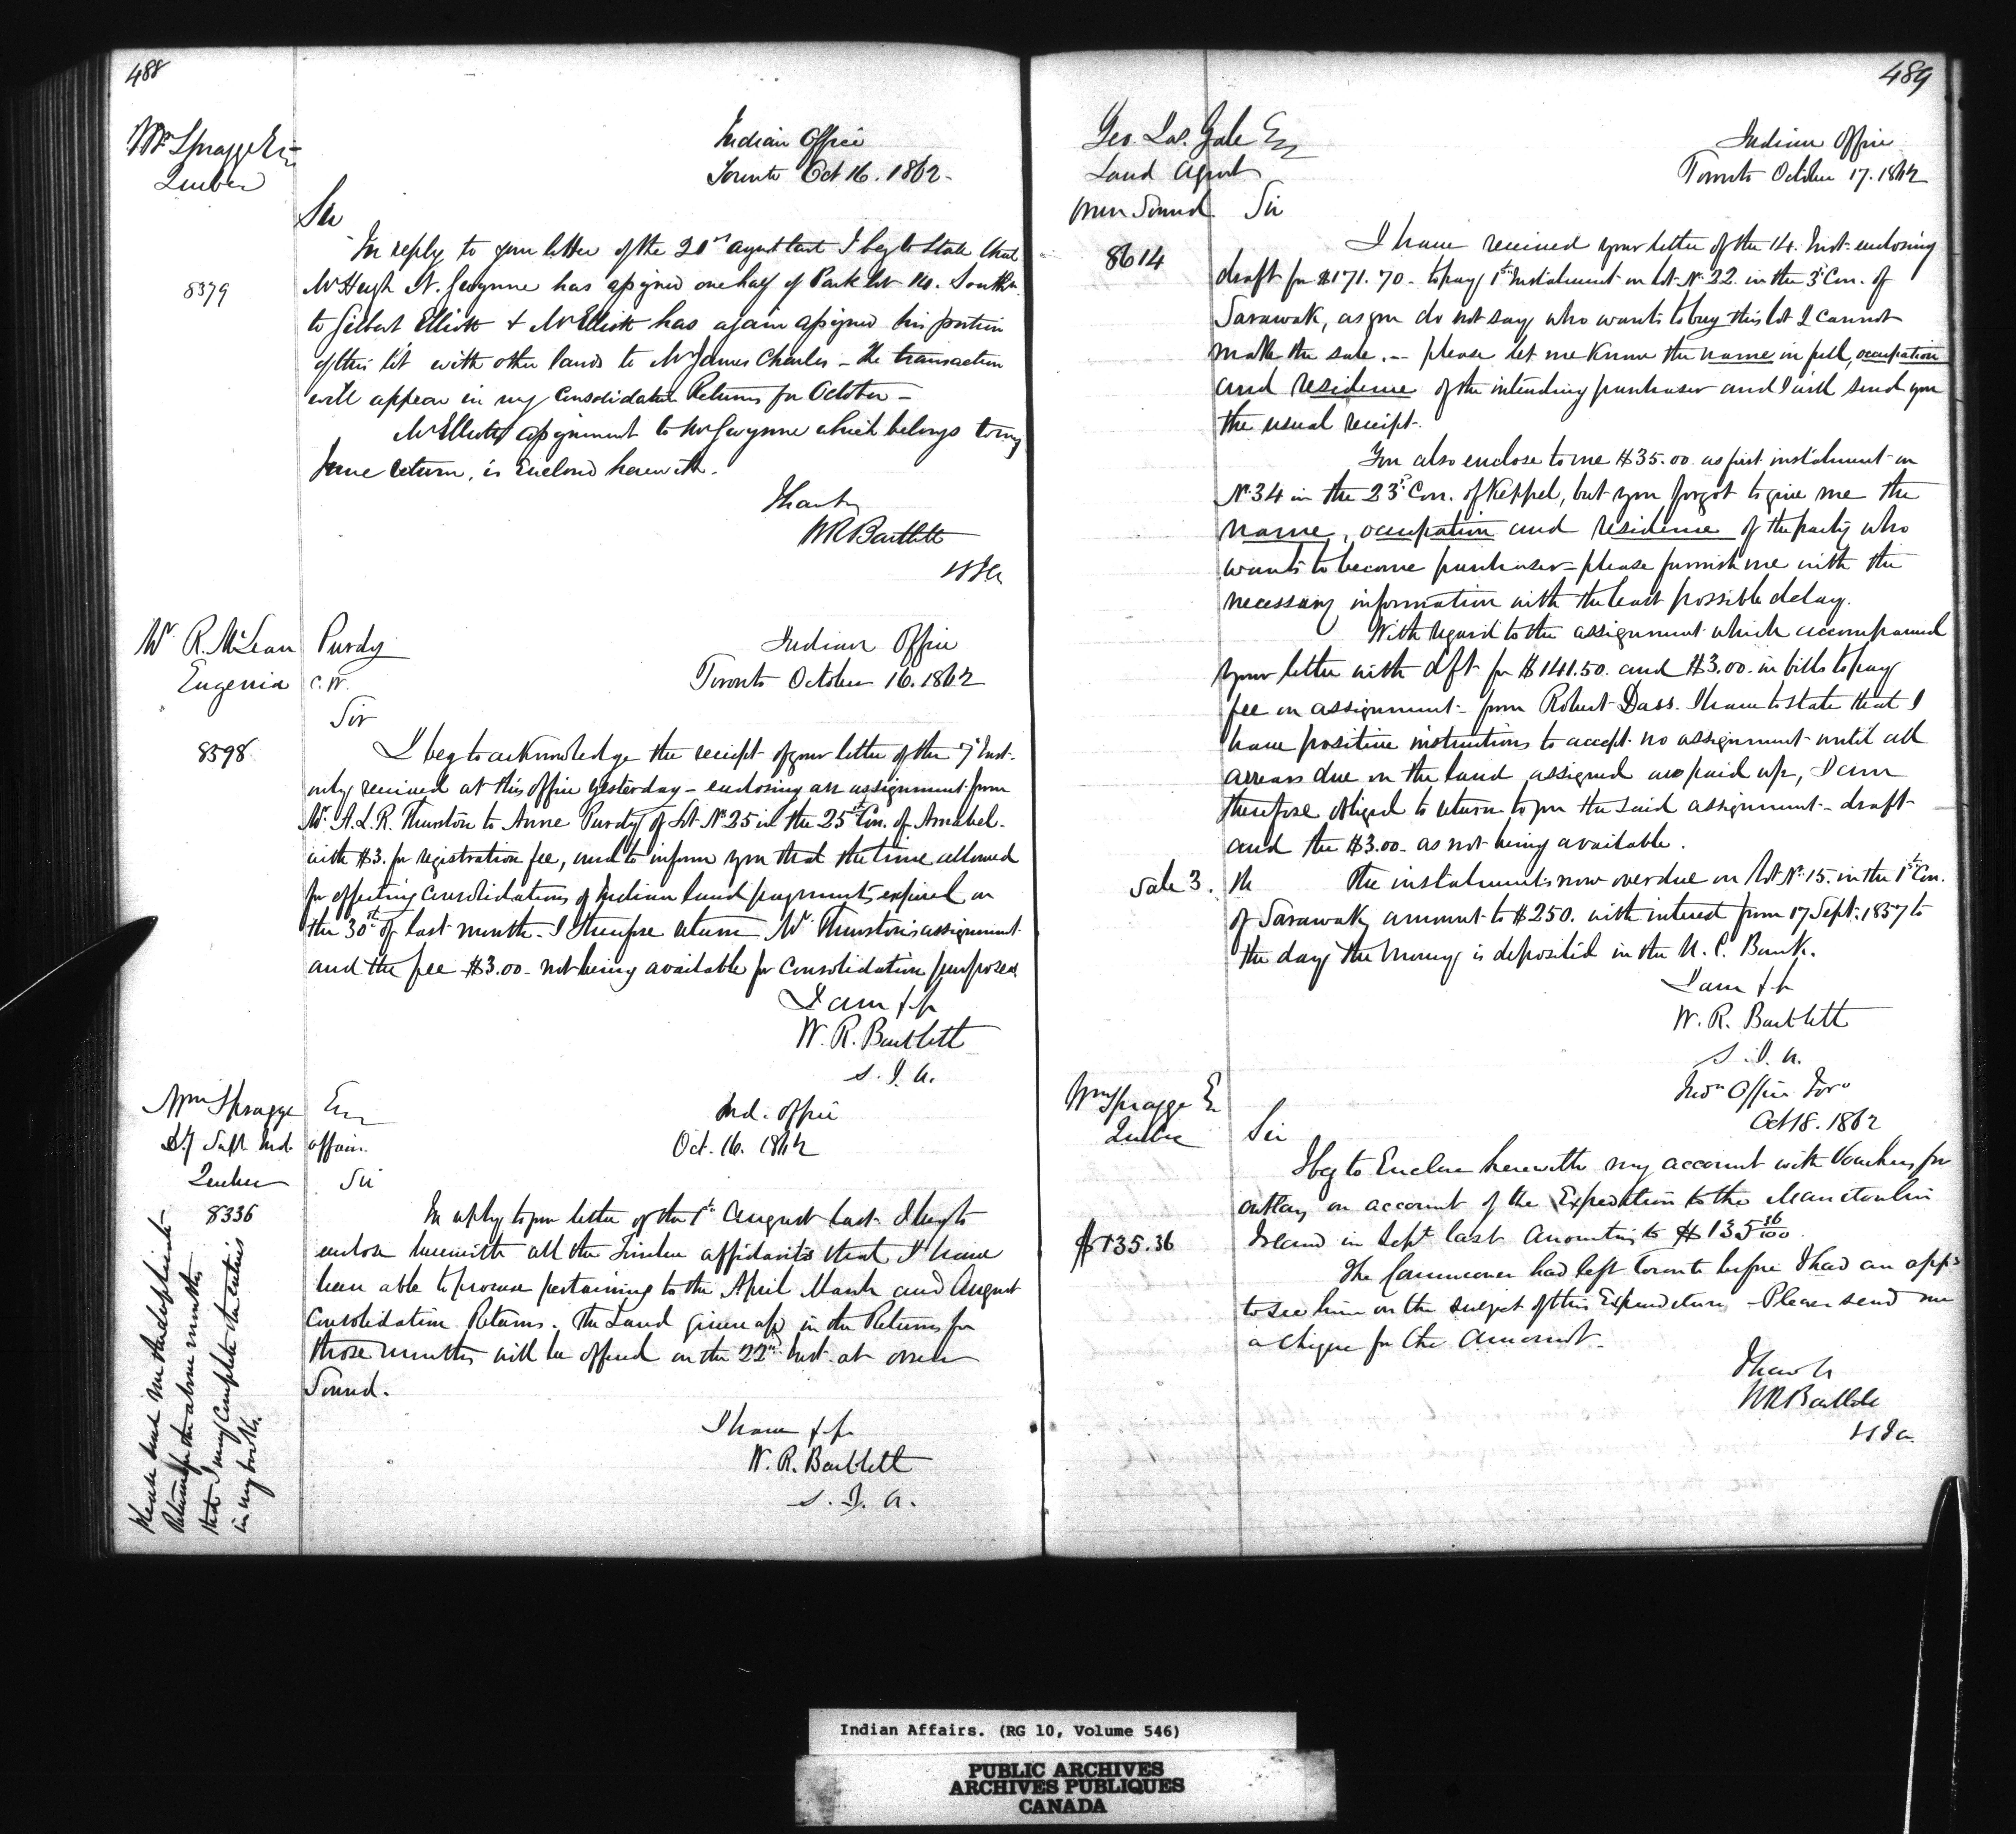 488
Wm Spragge Esq
Quebec
Indian Office
Toronto Oct 16. 1862-
Sir
In reply to your letter of the 20th August last I beg to state that
8379
Mr Hugh N. Gwynne has assigned one half of Park lot No. South
to Gilbert Elliott & Mr Elliott has again assigned his portion
of this lot with other lands to Mr James Charles - The transaction
will appear in my Consolidated Returns for October -
Mr Elliotts assignment to Mr Gwynne which belongs to my
June return, is enclosed herewith.
I have &c
W R Bartlett
V S I A
Mr R. McLean Purdy
Eugenia C. W.
Indian Office
Toronto October 16. 1862
Sir
8598
I beg to acknowledge the receipt of your letter of the 7th Inst.
only received at this office yesterday - enclosing an assignment from
Mr. A. L. R. Thurston to Anne Purdy of Lot No 25 in the 25th Con. of Amabel-
with $3. for registration fee, and to inform you that the time allowed
for effecting consolidations of Indian land payments expired on
the 30th of last month - I therefore return Mr Thurston's assignment
and the fee $3.00 - not being available for consolidation purposes.
I am &c
W. R. Bartlett
S. I. A.
Wm Spragge Esq
Dy Supt Ind. affairs
Quebec
Ind. Office
Oct. 16. 1862
Sir
8336
In reply to your letter of the 1st August last I beg to
enclose herewith all the Timber affidavits that I have
been able to procure pertaining to the April March and August
Consolidation Returns. The Land given up in the Returns for
those months will be offered on the 22nd Inst. at Owen
Sound.
I have &c
W. R. Bartlett
S. I. A.
Please send me the duplicate
Returns for the above months
that I may complete the entries
in my books.
489
Geo. Jas. Gale Esq
Land Agent
Owen Sound
Indian Office
Toronto October 17. 1862
Sir
8614
I have received your letter of the 14. Inst. enclosing
draft for $171.70 - to pay 1st Instalment on lot No 22 in the 3d Con. of
Sarawak, as you do not say who wants to buy this lot I cannot
make the sale. - please let me know the name in full, occupation
and residence of the intending purchaser and I will send you
the usual receipt.
You also enclose to me $35.00 as first instalment on
No 34 in the 23d Con. of Keppel, but you forgot to give me the
name, occupation and residence of the party who
wants to become purchaser - please furnish me with the
necessary information with the least possible delay.
With regard to the assignment which accompanied
your letter with dft for $141.50. and $3.00 in bills to pay
fee on assignment - from Robert Dass. I have to state that I
have positive instructions to accept no assignment until all
arrears due on the land assigned are paid up, I am
therefore obliged to return to you the said assignment - draft
and the $3.00 - as not being available.
Sale 3.
The instalments now overdue on lot No 15. in the 1st Con.
of Sarawak amount to $250. with interest from 17 Sept. 1857 to
the day the money is deposited in the U. C. Bank.
I am &c
W. R. Bartlett
S. I. A.
Wm Spragge Esq
Quebec
Indn Office Toro
Oct 18. 1862
Sir
I beg to Enclose herewith my account with Vouchers for
outlay on account of the Expedition to the Manitoulin
$135.36
Island in Sept last Amounting to $135 36/100.
The Commissioner had left Toronto before I had an oppy
to see him on the subject of this Expenditure - Please send me
a cheque for the amount -
I have &c
W R Bartlett
V S I A
Indian Affairs. (RG 10, Volume 546)
PUBLIC ARCHIVES
ARCHIVES PUBLIQUES
CANADA